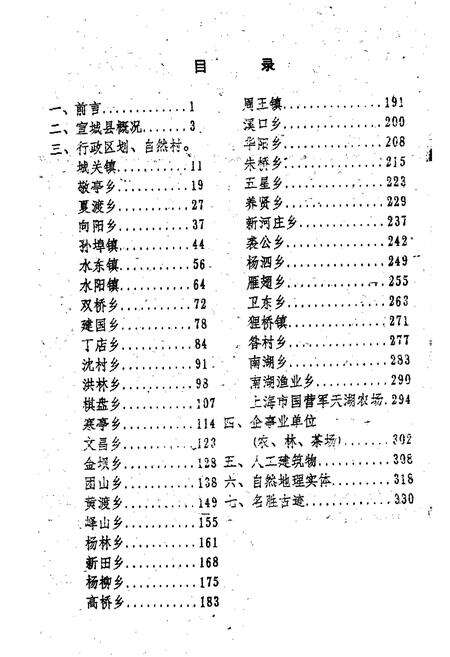 目 录
一、前言.............1
二、宣城县概况.......3
三、行政区划、自然村。
城关镇...........11
敬亭乡...........19
夏渡乡...........27
向阳乡...........37
孙埠镇...........44
水东镇...........56
水阳镇...........64
双桥乡...........72
建国乡...........78
丁店乡...........84
沈村乡...........91
洪林乡...........98
棋盘乡..........107
寒亭乡..........114
文昌乡..........123
金坝乡..........128
团山乡..........138
黄渡乡..........149
峄山乡..........155
杨林乡..........161
新田乡..........168
杨柳乡..........175
高桥乡..........183
周王镇..........191
溪口乡..........200
华阳乡..........208
朱桥乡..........215
五星乡..........223
养贤乡..........229
新河庄乡........237
裘公乡..........242
杨泗乡..........249
雁翅乡..........255
卫东乡..........263
狸桥镇..........271
昝村乡..........277
南湖乡..........283
南湖渔业乡......290
上海市国营军天湖农场.294
四、企事业单位
(农、林、茶场).......302
五、人工建筑物.........308
六、自然地理实体.......318
七、名胜古迹...........330